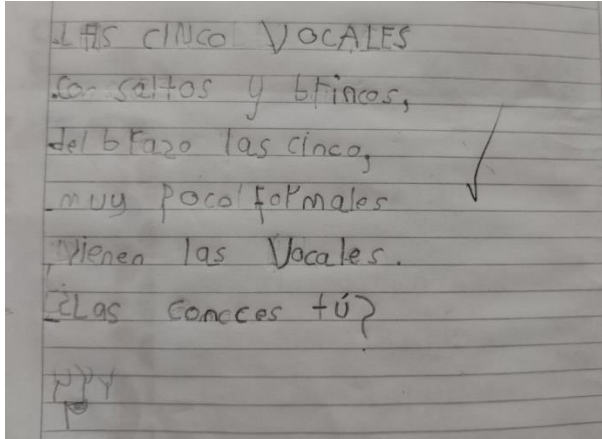 LAS CINCO VOCALES
Con saltos y brincos,
del brazo las cinco,
muy poco formales
vienen las Vocales.
¿Las conoces tú?